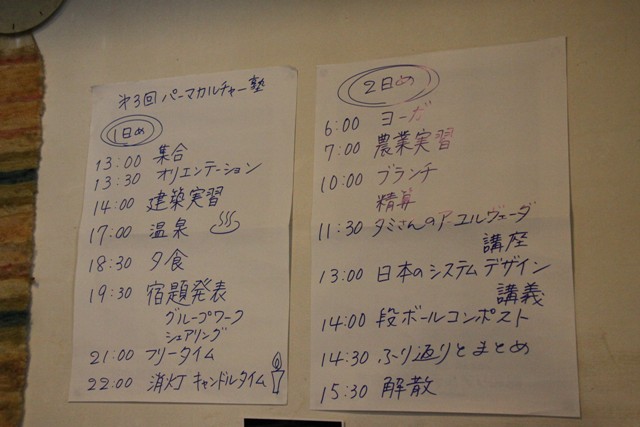 第3回 パーマカルチャー塾
1日め
13:00 集合
13:30 オリエンテーション
14:00 建築実習
17:00 温泉
18:30 夕食
19:30 宿題発表
グループワーク
シェアリング
21:00 フリータイム
22:00 消灯 キャンドルタイム
2日め
6:00 ヨーガ
7:00 農業実習
10:00 ブランチ
精算
11:30 タミさんのアーユルヴェーダ
講座
13:00 日本のシステムデザイン
講義
14:00 段ボールコンポスト
14:30 ふり返りとまとめ
15:30 解散